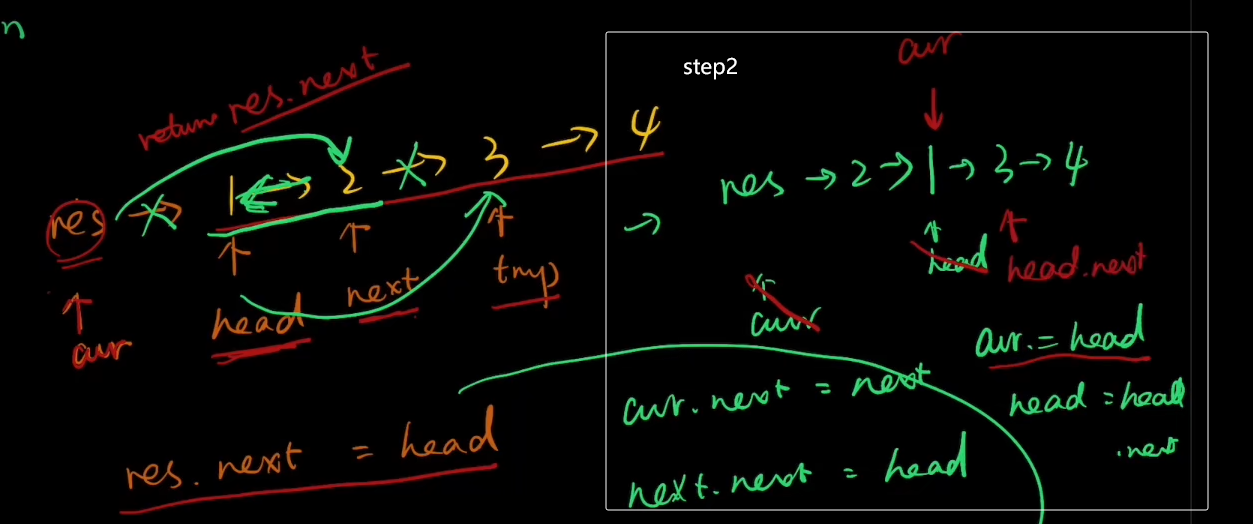 n
return res.next
res → 1 → 2 → 3 → 4
cur
head
next
tmp
res.next = head
step2
cur
res → 2 → 1 → 3 → 4
→
head
head.next
curr
cur.next = next
next.next = head
cur.= head
head = head
.next